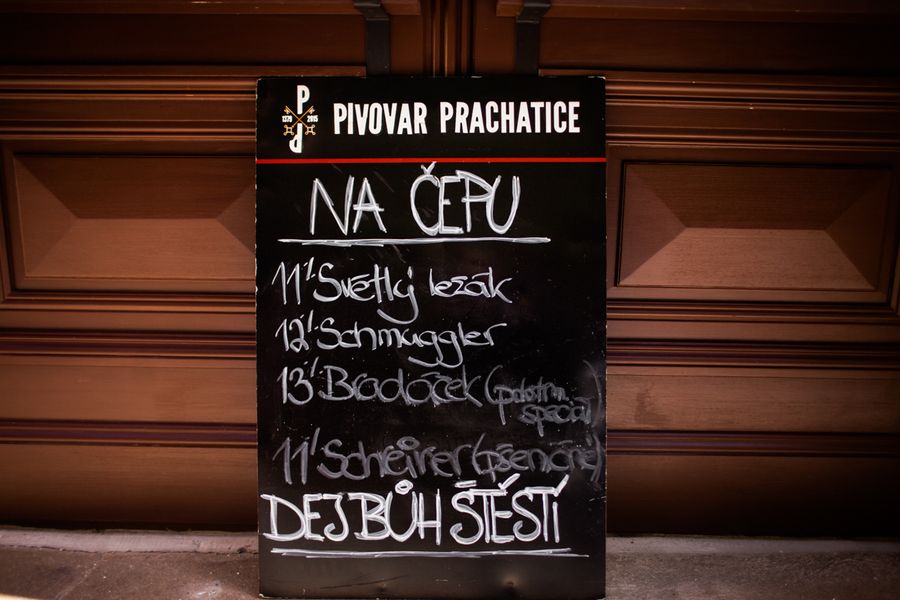 P
1379 2015
P
PIVOVAR PRACHATICE
NA ČEPU
11° Světlý ležák
12° Schmuggler
13° Bradáček (polotm.
speciál)
11° Schreiner (pšeničné)
DEJ BŮH ŠTĚSTÍ